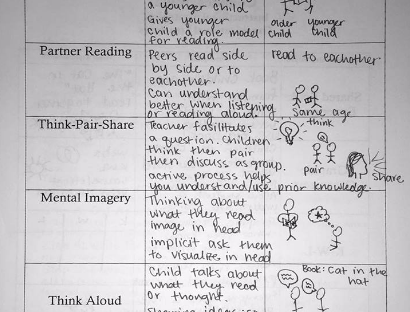 a younger child
Gives younger
child a role model
for reading.
older younger
child child
Partner Reading
Peers read side
by side or to
eachother.
Can understand
better when listening
or reading aloud.
read to eachother
Same age
Think-Pair-Share
Teacher fasilitates
a question. Children
think then pair
then discuss as group.
active process helps
you understand/use prior knowledge.
think
pair
share
Mental Imagery
Thinking about
what they read
image in head
implicit ask them
to visualize in head
Think Aloud
Child talks about
what they read
or thought.
Book: Cat in the
hat